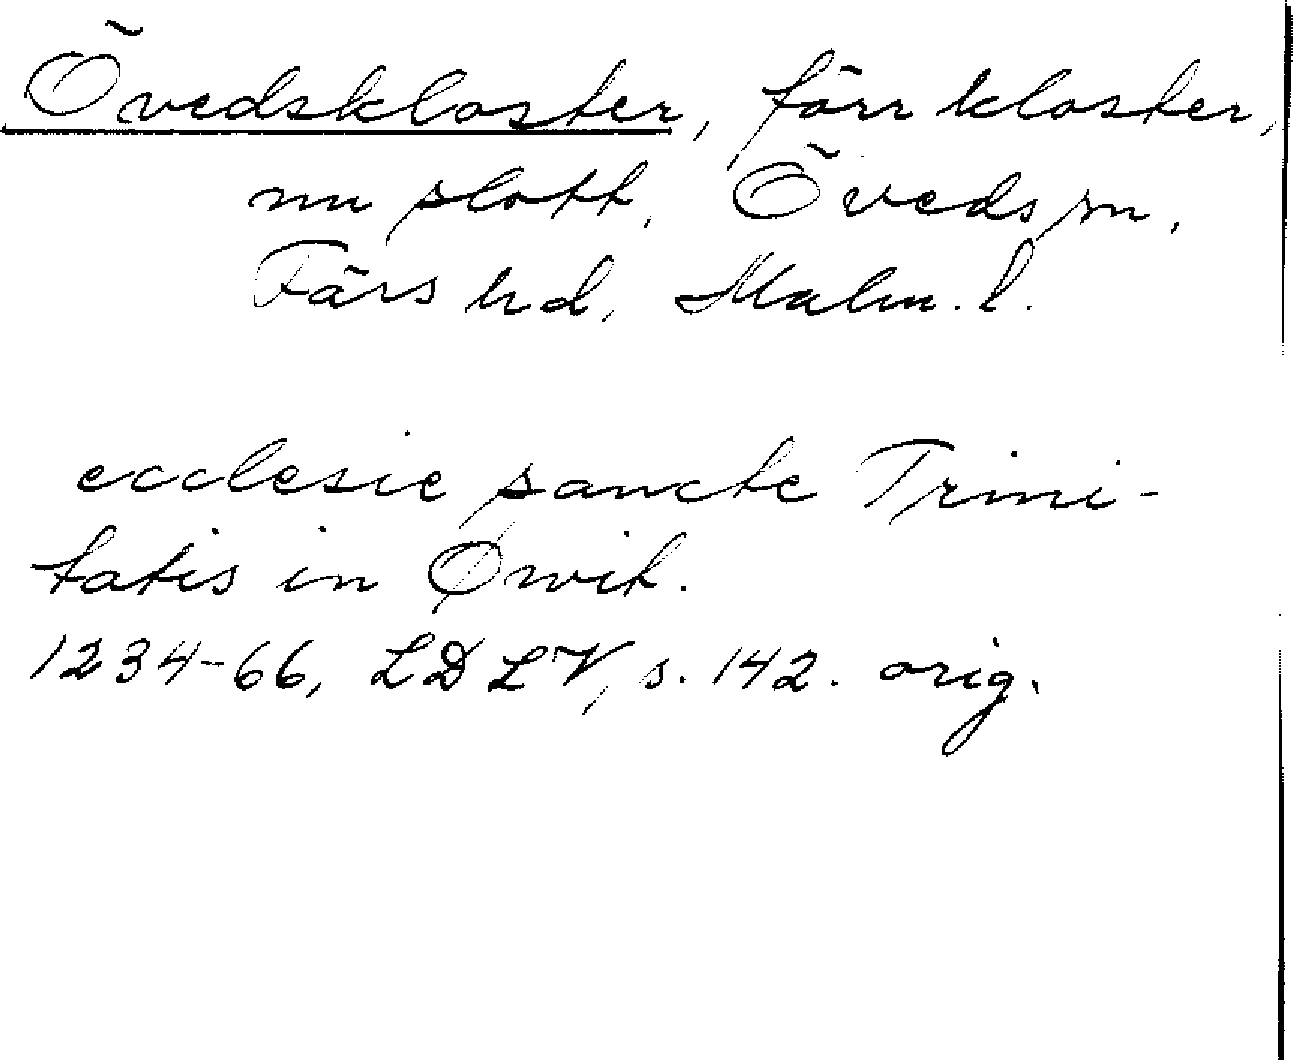 Övedskloster, förr kloster,
nu slott, Öveds sn,
Färs hd, Malm. l.
ecclesie sancte Trini-
tatis in Øwit.
1234-66, LDLV, s. 142. orig.